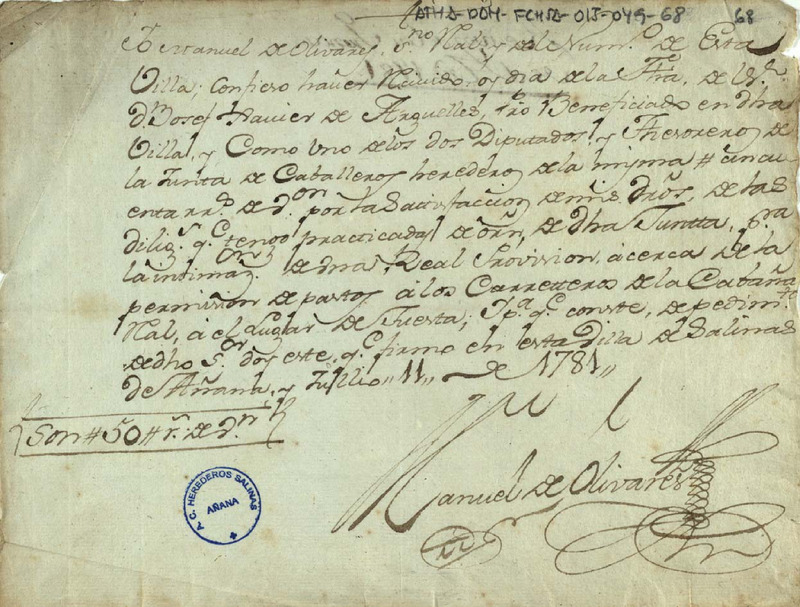 ATHA-DAH-FCHSA-015-049-68 68
Yo Manuel de Olivares, Sno. Rl. y del Numo. de Esta
Villa; Confieso haver Recivido, oy dia de la Fha, de el Sr.
Dn. Josef Xavier de Arguelles, Pro. Beneficiado en dha
Villa, y Como uno de los dos Diputados, y Thesorero de
la Junta de Cavalleros herederos de la misma # cincu
enta rrs. de von por la Satisfaccion de mis dros, de las
diligs. qe. tengo practicadas de orn, de dha Juntta, pra
la intimazon. de una Real Provision, acerca de la
permision de pastos á los Carreteros de la Cabaña
Ral, á el Lugar de Tuesta; I pa. qe. conste, de pedimto
de dho Sor. doy este, qe. firmo en esta Villa de Salinas
de Añana, y Jullio,, 11,, de 1781,,
Son # 50 # rs. de von
Manuel de Olivares
A. C. HEREDEROS SALINAS
AÑANA